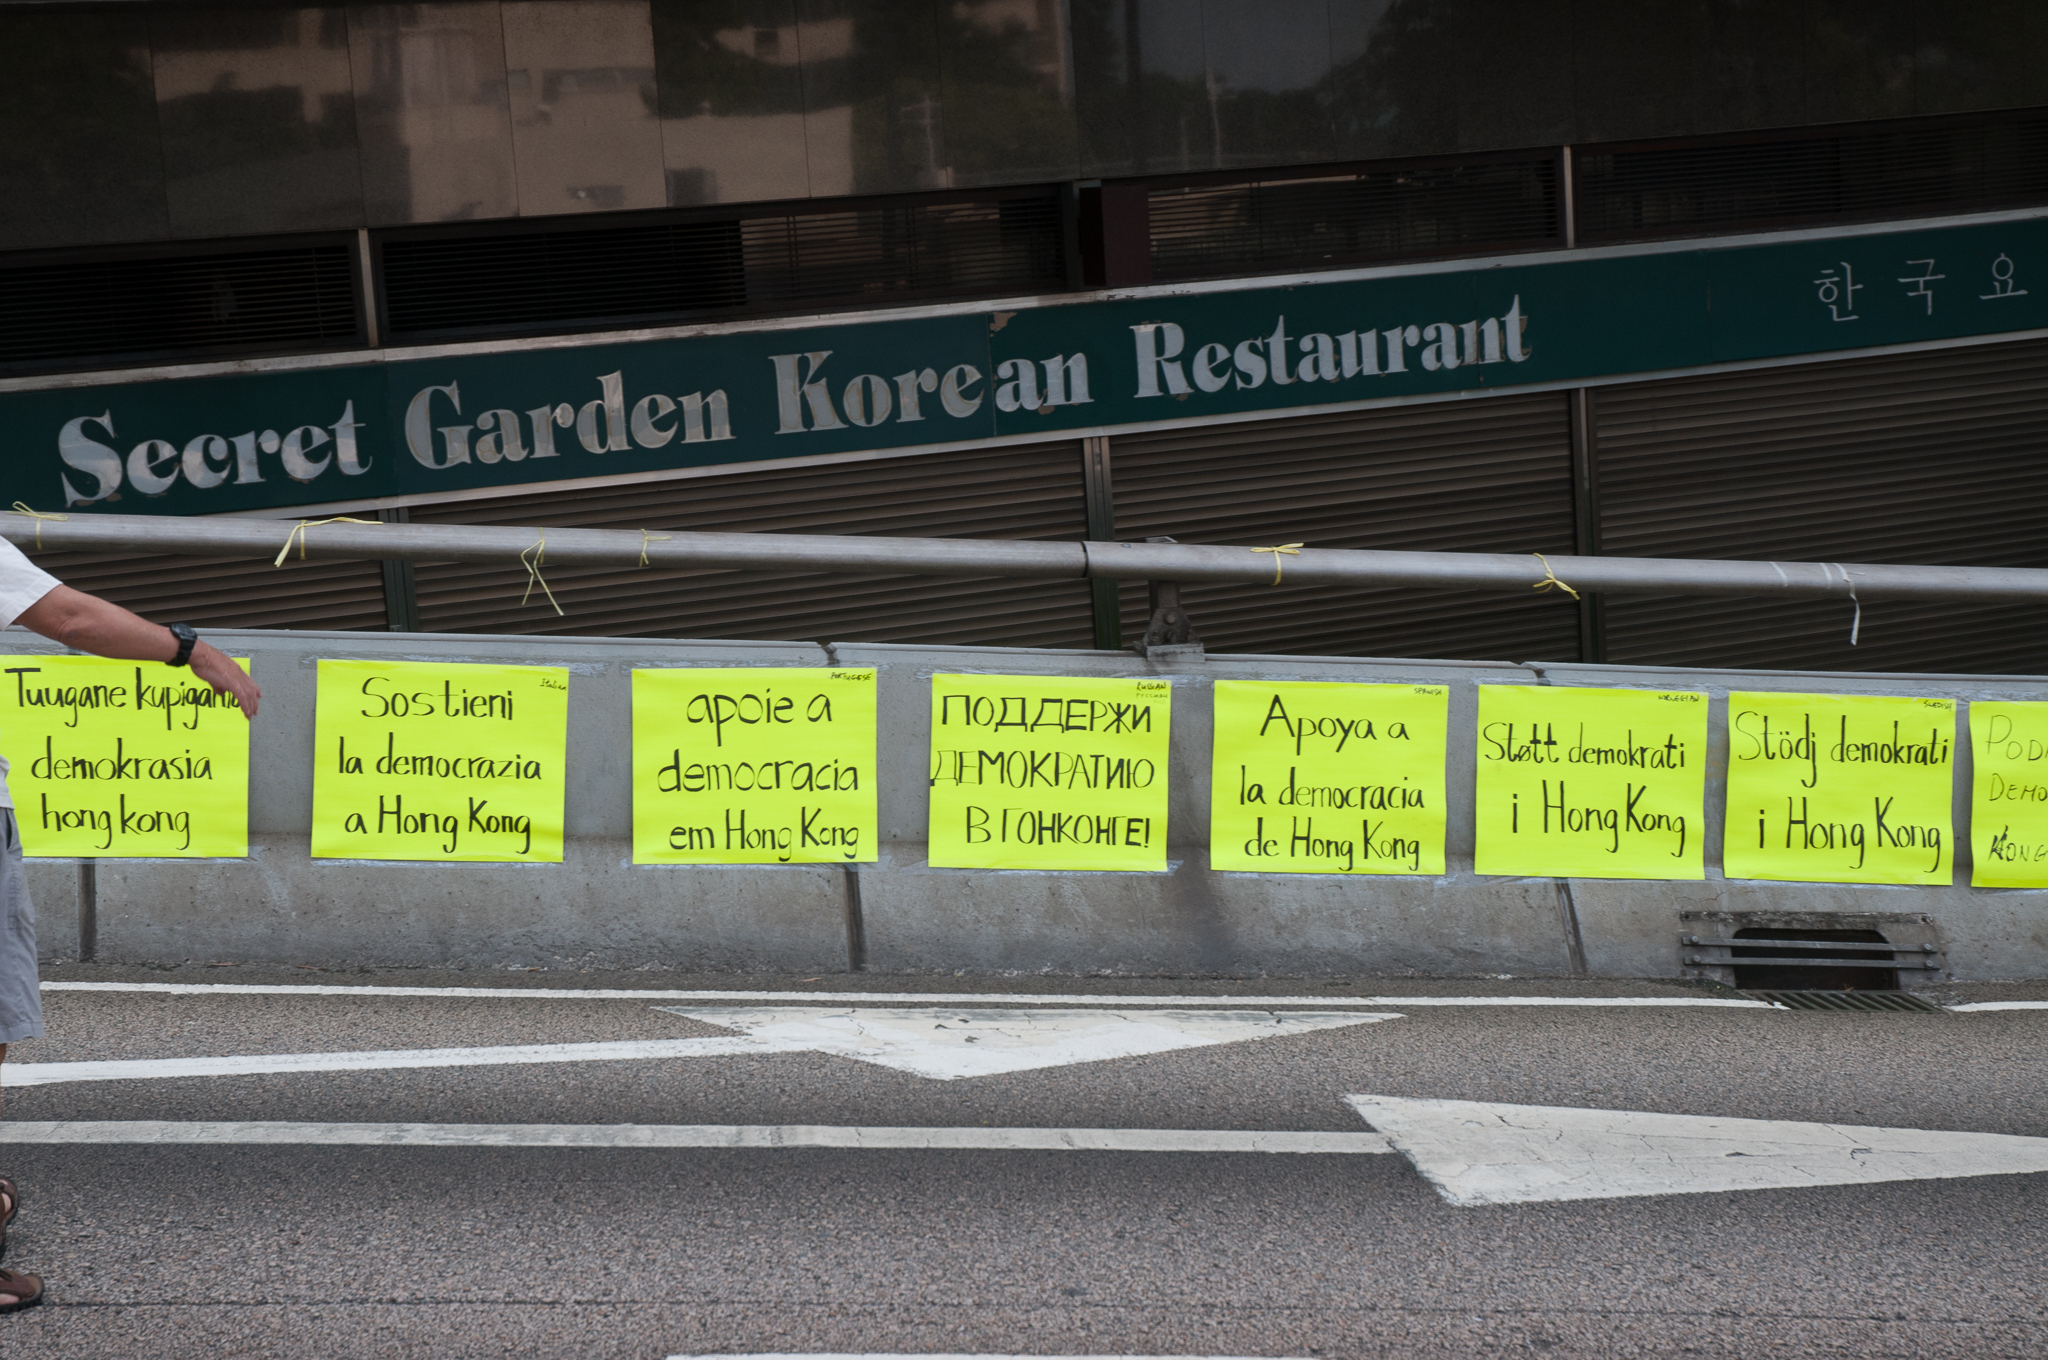 Secret Garden Korean Restaurant
한국요
Tuugane kupigania
demokrasia
hong kong
Italian
Sostieni
la democrazia
a Hong Kong
PORTUGESE
apoie a
democracia
em Hong Kong
RUSSIAN
РУССКИЙ
ПОДДЕРЖИ
ДЕМОКРАТИЮ
В ГОНКОНГЕ!
SPANISH
Apoya a
la democracia
de Hong Kong
NORWEGIAN
Støtt demokrati
i Hong Kong
SWEDISH
Stödj demokrati
i Hong Kong
DEMO
KONG